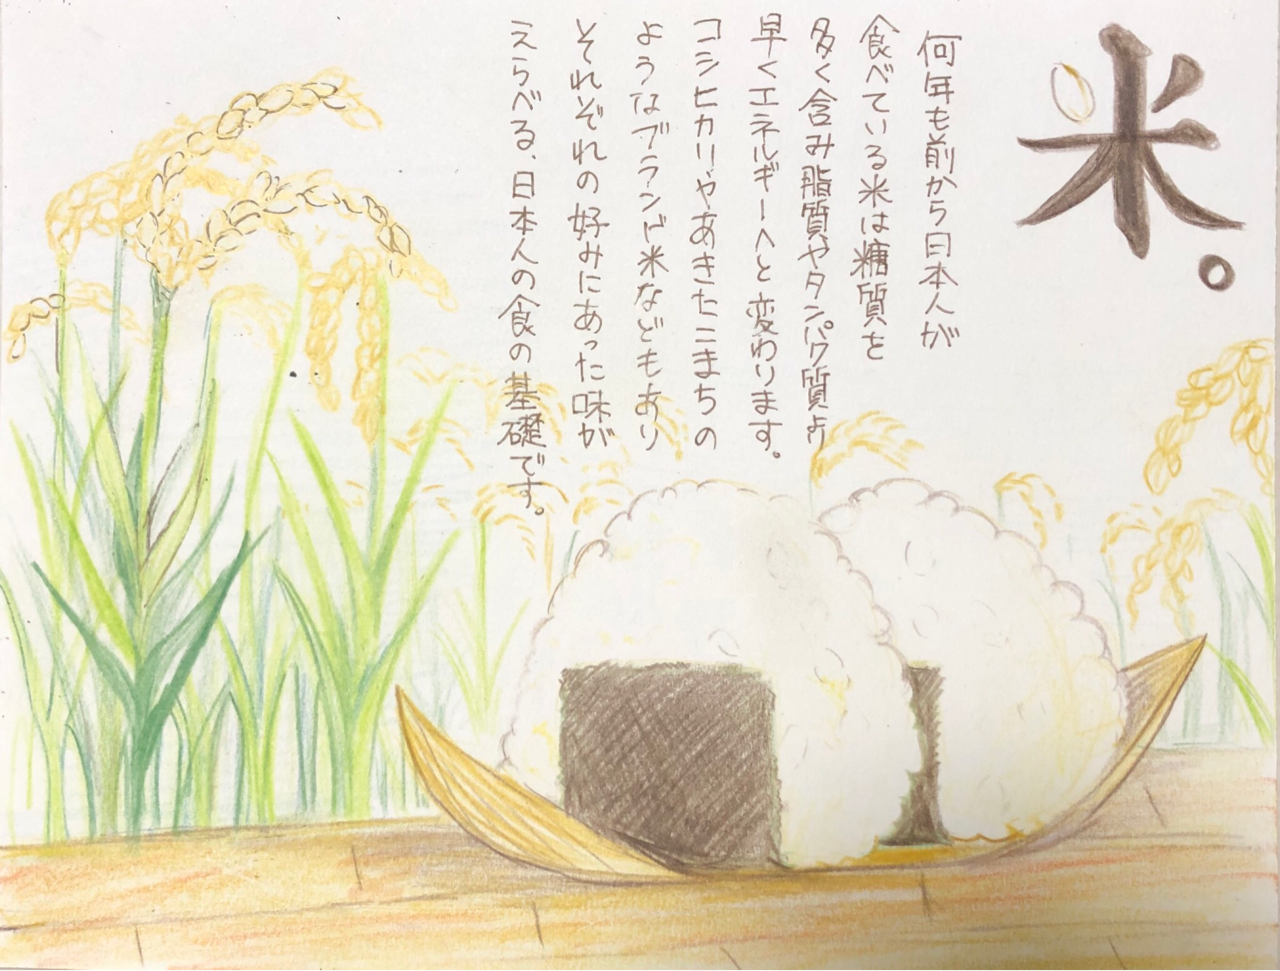 米。
何年も前から日本人が
食べている米は糖質を
多く含み脂質やタンパク質より
早くエネルギーへと変わります。
コシヒカリやあきたこまちの
ようなブランド米などもあり
それぞれの好みにあった味が
えらべる、日本人の食の基礎です。